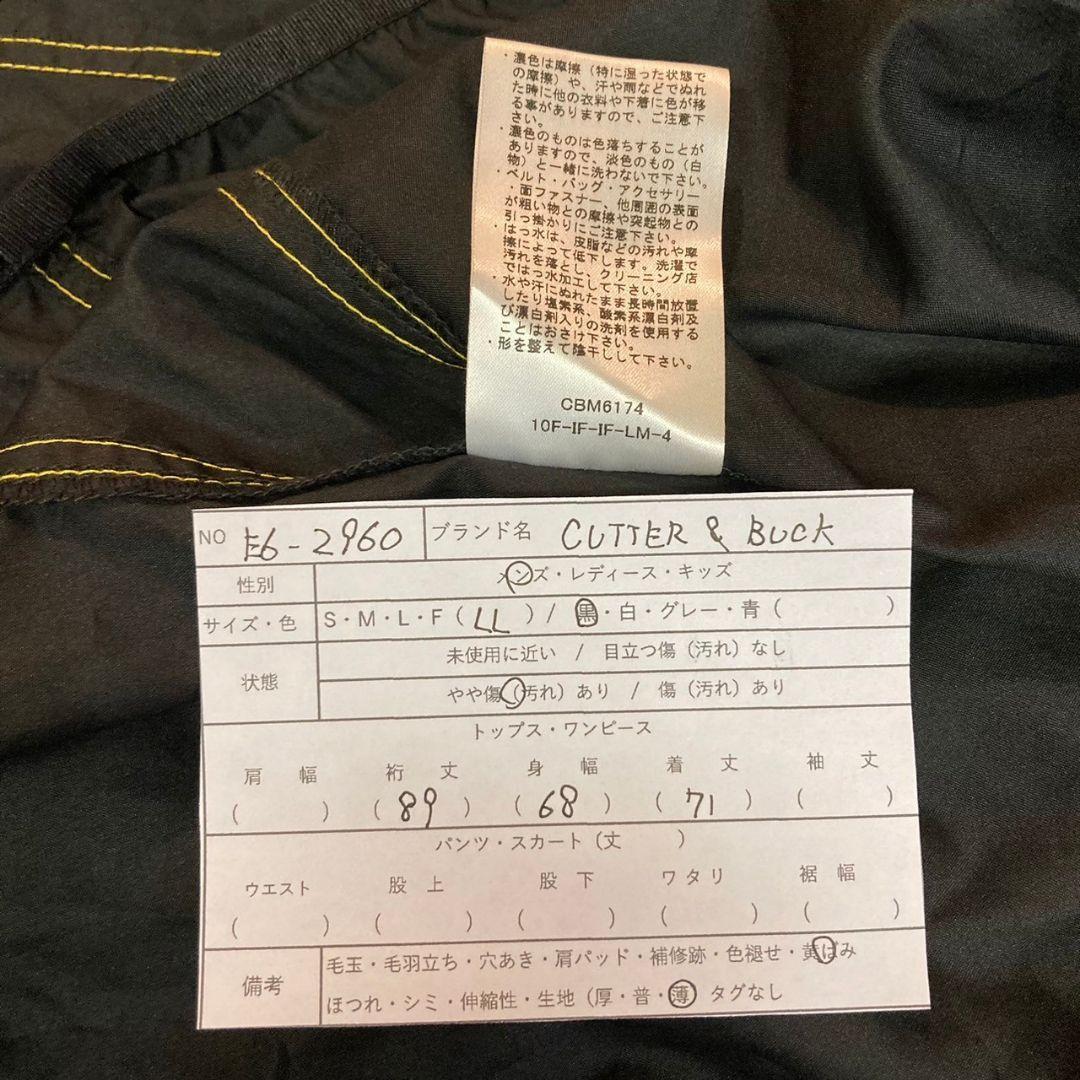 ・濃色は摩擦（特に湿った状態で
の摩擦）や、汗や雨などでぬれ
た時に他の衣料や下着に色が移
る事がありますので、ご注意下
さい。
・濃色のものは色落ちすることが
ありますので、淡色のもの（白
物）と一緒に洗わないで下さい。
・ベルト・バッグ・アクセサリー
・面ファスナー、他周囲の表面
が粗い物との摩擦や突起物との
引っ掛かりにご注意下さい。
・はっ水は、皮脂などの汚れや摩
擦によって低下します。洗濯で
汚れを落とし、クリーニング店
ではっ水加工して下さい。
・水や汗にぬれたまま長時間放置
したり塩素系、酸素系漂白剤及
び漂白剤入りの洗剤を使用する
ことはおさけ下さい。
・形を整えて陰干しして下さい。
CBM6174
10F-IF-IF-LM-4
NO E6-2960 ブランド名 CUTTER & BUCK
性別 メンズ・レディース・キッズ
サイズ・色 S・M・L・F（LL）/ 黒・白・グレー・青（ ）
状態 未使用に近い / 目立つ傷（汚れ）なし
やや傷（汚れ）あり / 傷（汚れ）あり
トップス・ワンピース
肩幅 裄丈 身幅 着丈 袖丈
（ ）（89）（68）（71）（ ）
パンツ・スカート（丈 ）
ウエスト 股上 股下 ワタリ 裾幅
（ ）（ ）（ ）（ ）（ ）
備考 毛玉・毛羽立ち・穴あき・肩パッド・補修跡・色褪せ・黄ばみ
ほつれ・シミ・伸縮性・生地（厚・普・薄 タグなし